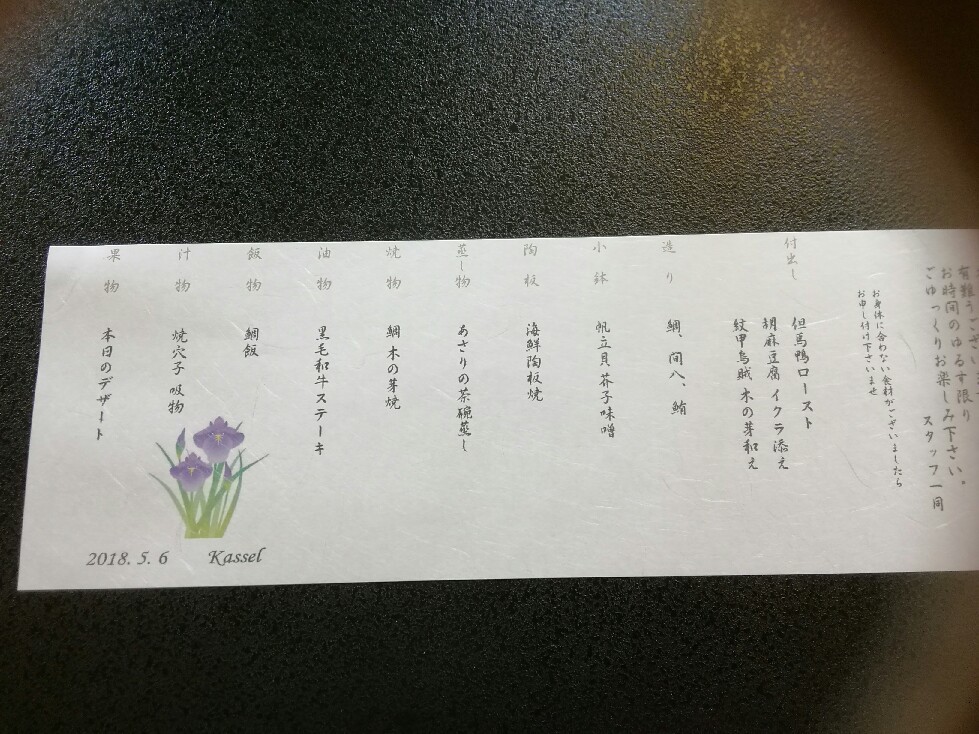 有難うございます
お時間のゆるす限り
ごゆっくりお楽しみ下さい。
スタッフ一同
お身体に合わない食材がございましたら
お申し付け下さいませ
付出し
但馬鴨ロースト
胡麻豆腐 イクラ添え
紋甲烏賊 木の芽和え
造り
鯛、間八、鮪
小鉢
帆立貝芥子味噌
陶板
海鮮陶板焼
蒸し物
あさりの茶碗蒸し
焼物
鯛木の芽焼
油物
黒毛和牛ステーキ
飯物
鯛飯
汁物
焼穴子 吸物
果物
本日のデザート
2018. 5. 6 Kassel